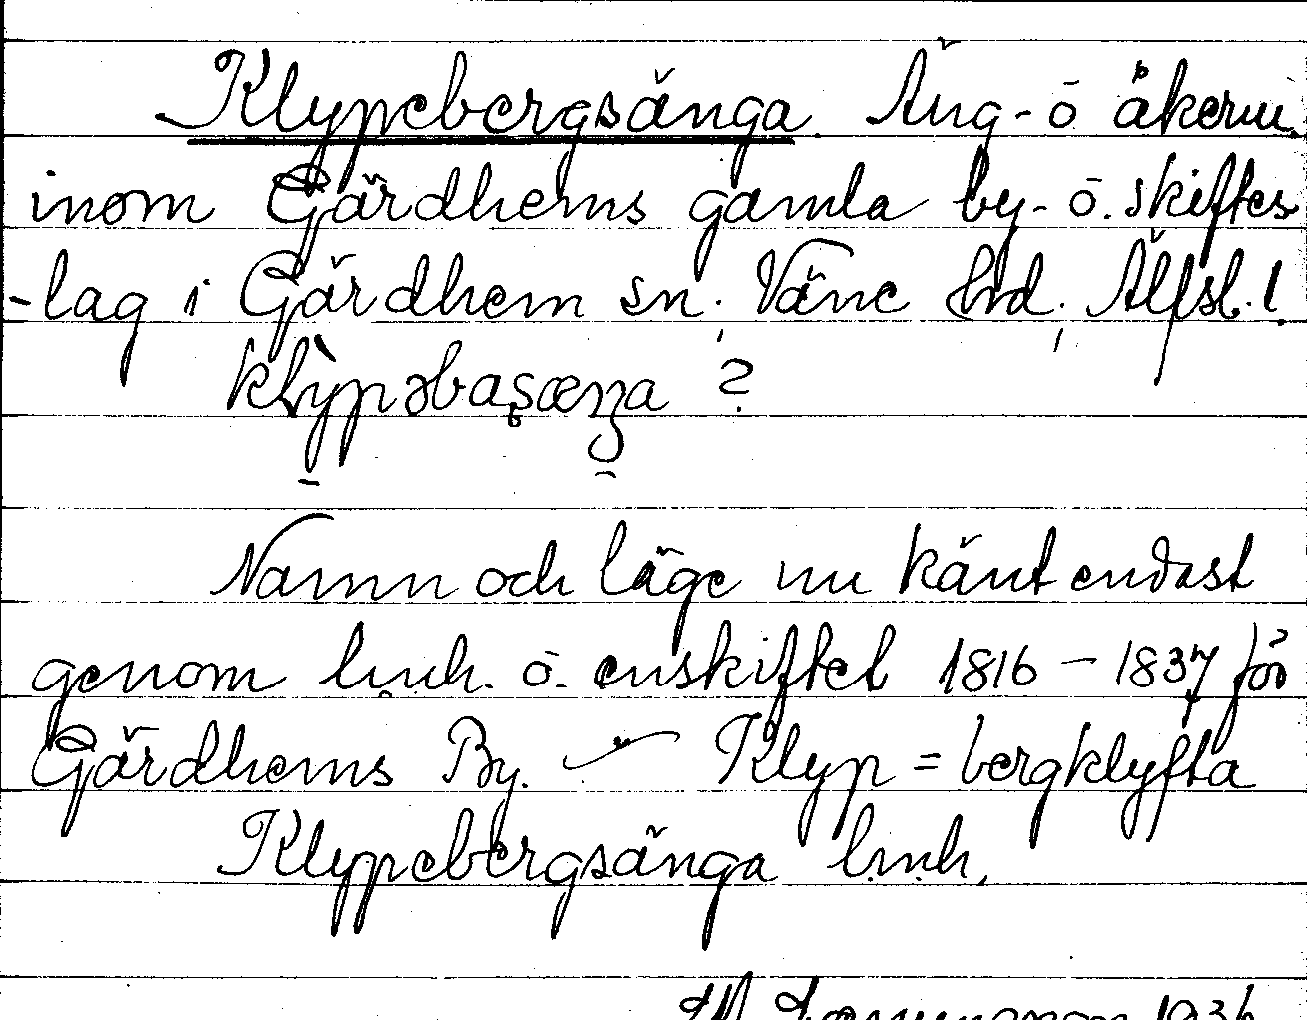 Klypebergsänga. Äng- o åkerm.
inom Gärdhems gamla by- o. skiftes
-lag i Gärdhem sn; Väne Hrd; Älfsb. l.
klỳpəbaʂæŋa ?
Namn och läge nu känt endast
genom lmh. o. enskiftet 1816 – 1837 för
Gärdhems By. – Klyp = bergklyfta
Klypebergsänga lmh.
1936